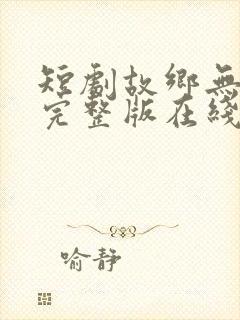 短劇故鄉無
完整版在綫
喻靜